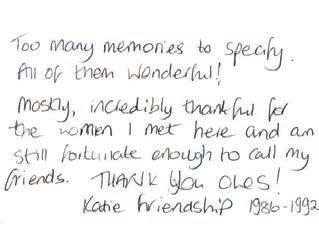 Too many memories to specify.
All of them wonderful!
Mostly, incredibly thankful for
the women I met here and am
still fortunate enough to call my
friends. THANK YOU OLGS!
Katie Friendship 1986-1992